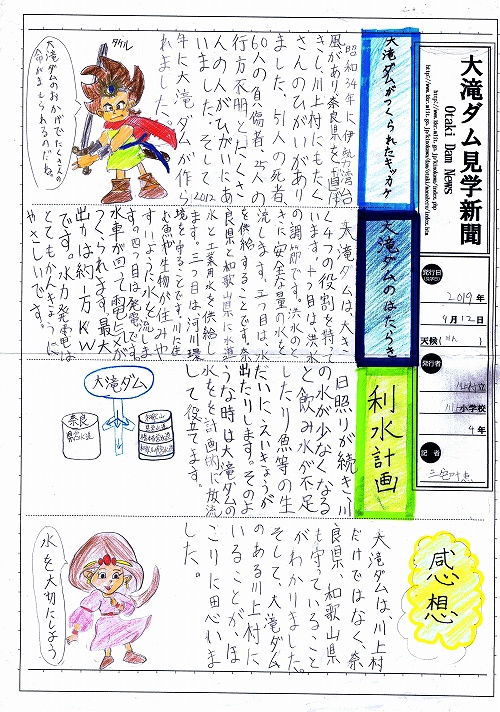 大滝ダム見学新聞
Otaki Dam News
発行日
2019年
9月12日
天候(
発行者
川上村立
川上小学校
4年
記者
大滝ダムがつくられたキッカケ
昭和34年に伊勢湾台
風があり奈良県を直げ
きし、川上村にもたく
さんのひがいがあり
ました。51人の死者、
60人の負傷者、25人の
行方不明とたくさん
の人がひがいにあ
いました。そして2012
年に大滝ダムが作ら
れました。
タケル
大滝ダムのおかげでたくさんの
命がまもられるのだね。
大滝ダムのはたらき
大滝ダムは、大き
く4つの役割を持って
います。一つ目は、洪水
の調節です。洪水のと
きに安全な量の水を
流します。二つ目は、水
を供給することです。奈
良県と和歌山県に水道
水と工業用水を供給し
ます。三つ目は河川環
境を守ることです。川に生
む魚や生物が住みや
すいように水を流しま
す。四つ目は発電です。
水車が回って電気が
つくられます。最大
出力は約1万KW
です。水力発電は
とてもかんきょうに
やさしいです。
利水計画
日照りが続き、川
の水が少なくなる
と飲み水が不足
したり魚等の生
だいにえいきょうが
出たりします。そのよ
うな時は大滝ダムの
水を計画的に放流
して役立てます。
大滝ダム
奈良
県営水道
和歌山
橋本市水道
感想
大滝ダムは、川上村
だけではなく、奈
良県、和歌山県
も守っていること
がわかりました。
そして、大滝ダム
のある川上村に
いることが、ほ
こりに思いま
した。
水を大切にしよう